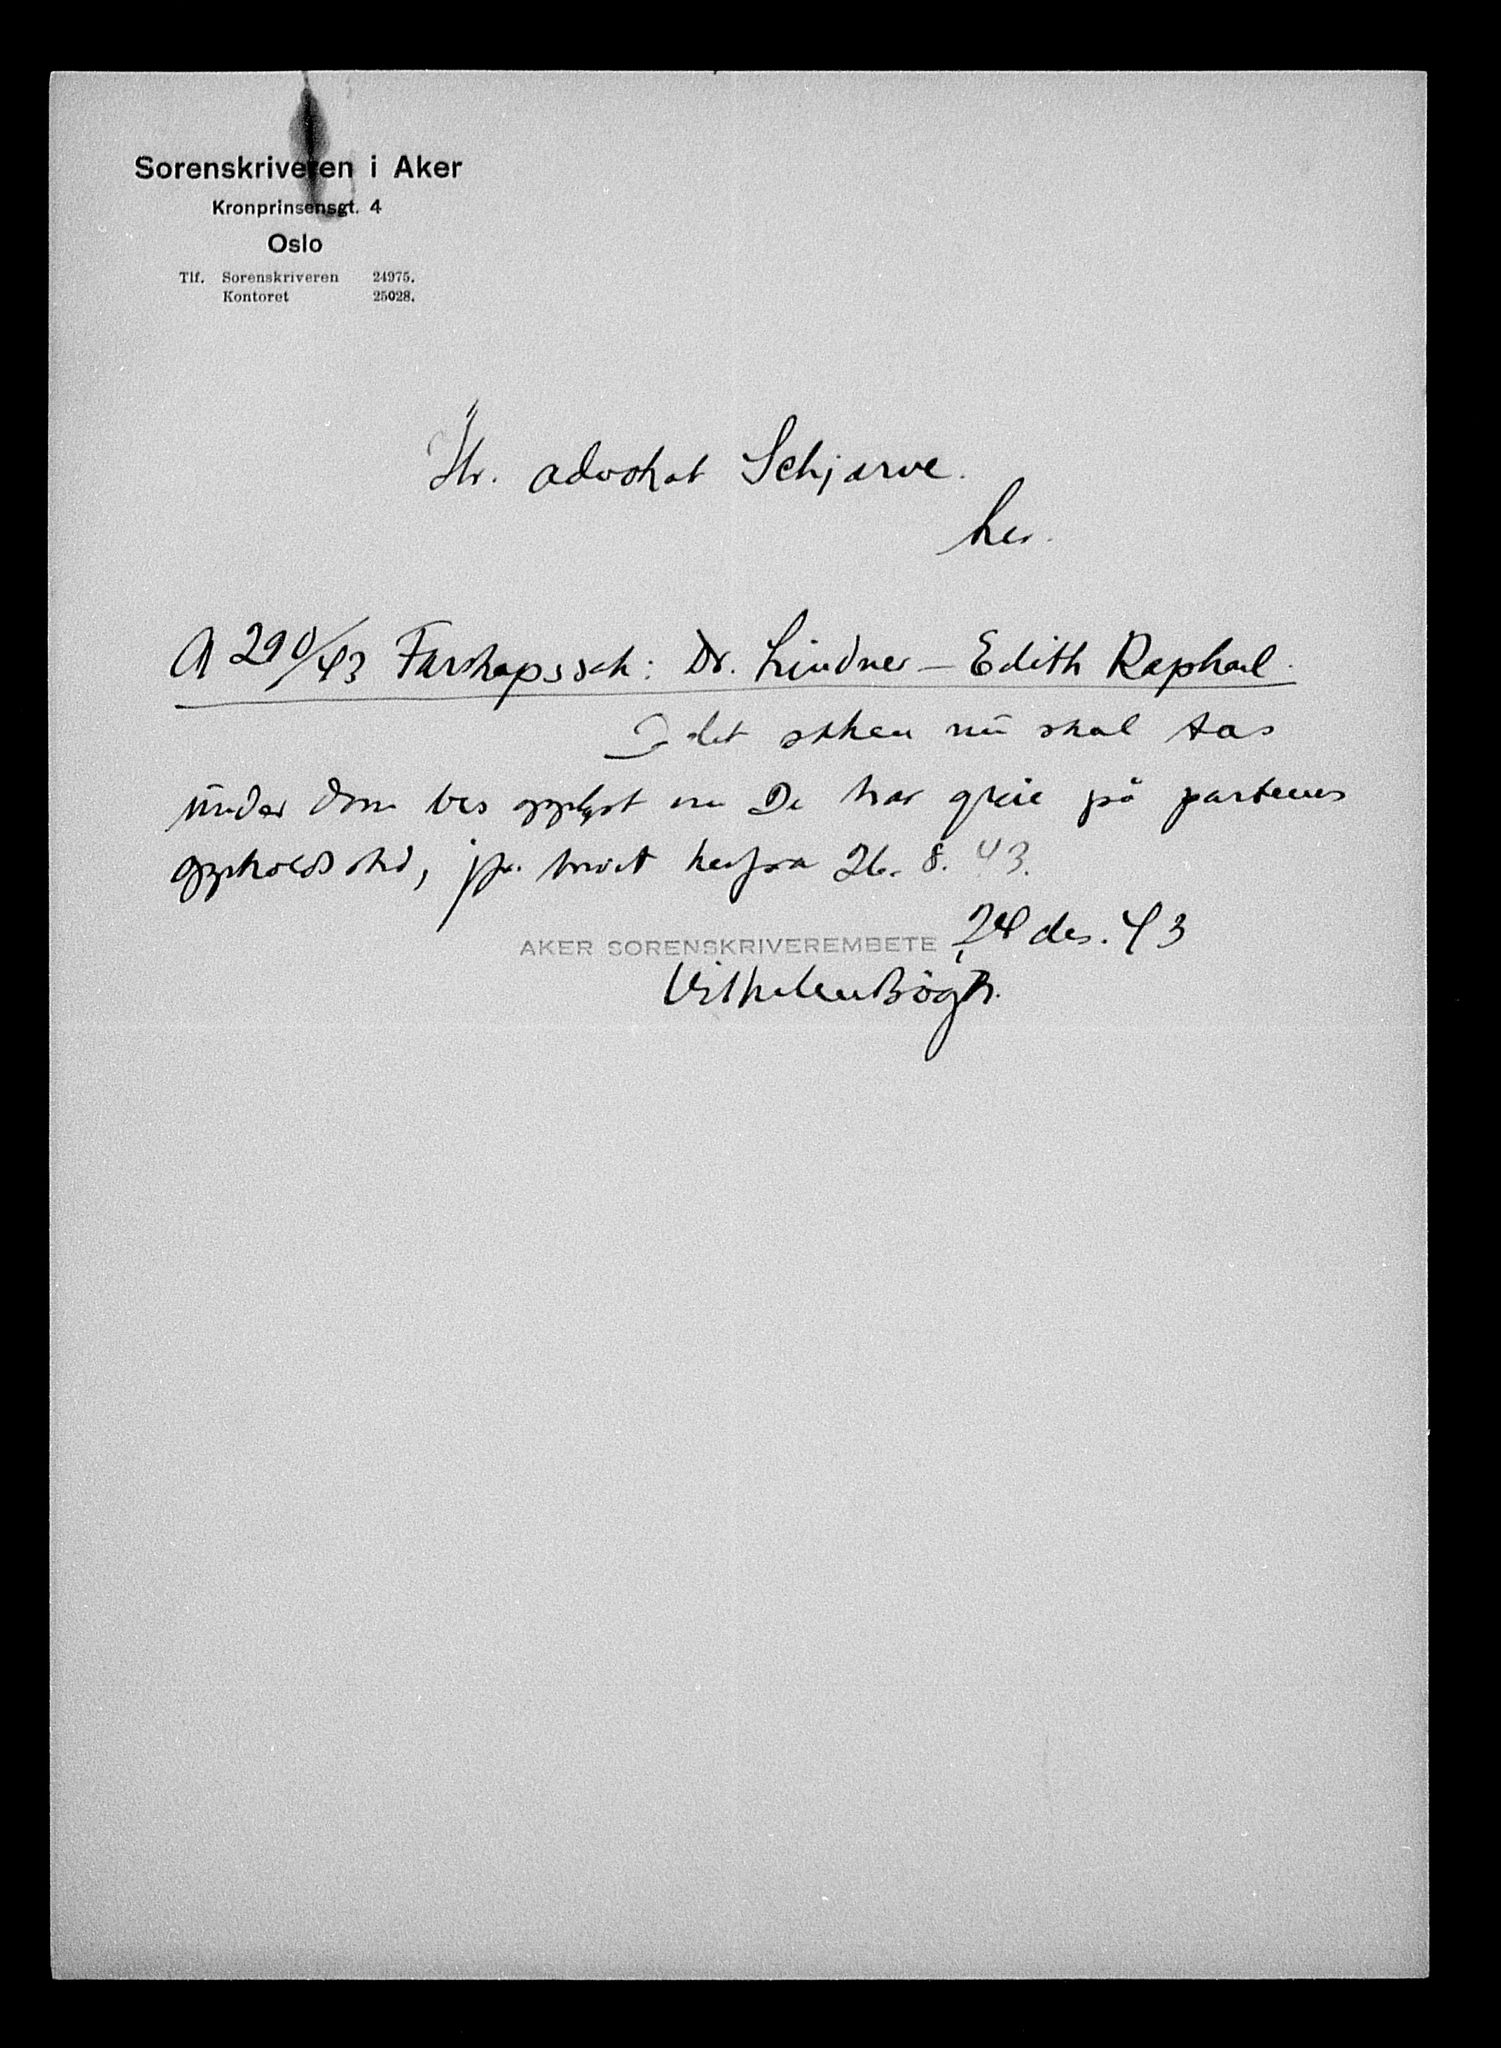 Sorenskriveren i Aker
Kronprinsensgt. 4
Oslo
Tlf. Sorenskriveren 24975.
Kontoret 25028.
Hr. advokat Schjarve.
her.
A 290/43 Farskapssak: Dr. Lindner — Edith Raphael.
I det saken nu skal tas
under dom bes opplyst om De har greie på partenes
oppholdssted, jfr. herfra 26. 8. 43.
AKER SORENSKRIVEREMBETE, 24 des. 43
Vilhelm Bøgh.